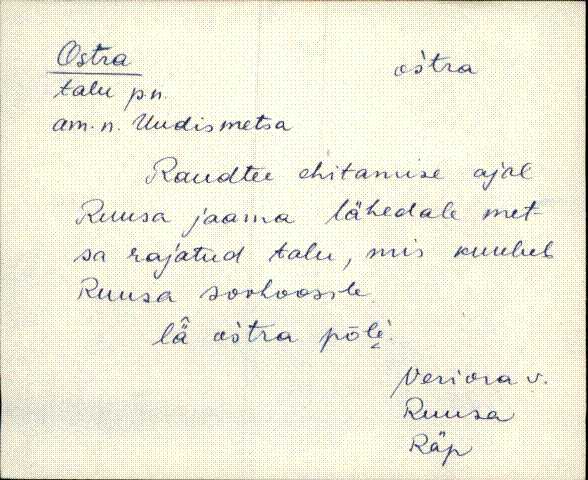 Ostra ośtra
talu p.n.
am. n. Uudismetsa
Raudtee ehitamise ajal
Ruusa jaama lähedale met-
sa rajatud talu, mis kuulub
Ruusa sovhoosile.
lä̂ ośtra põlé.
Veriora v.
Ruusa
Räp